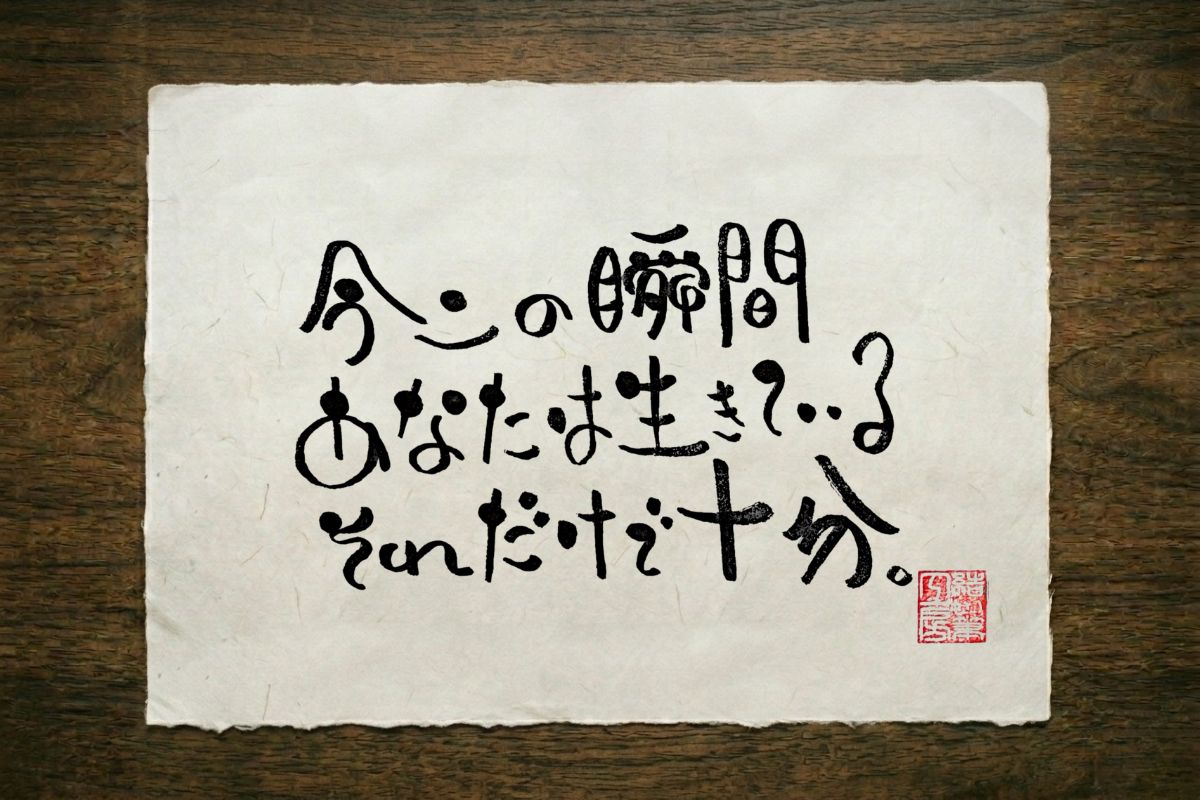 今この瞬間
あなたは生きている
それだけで十分。